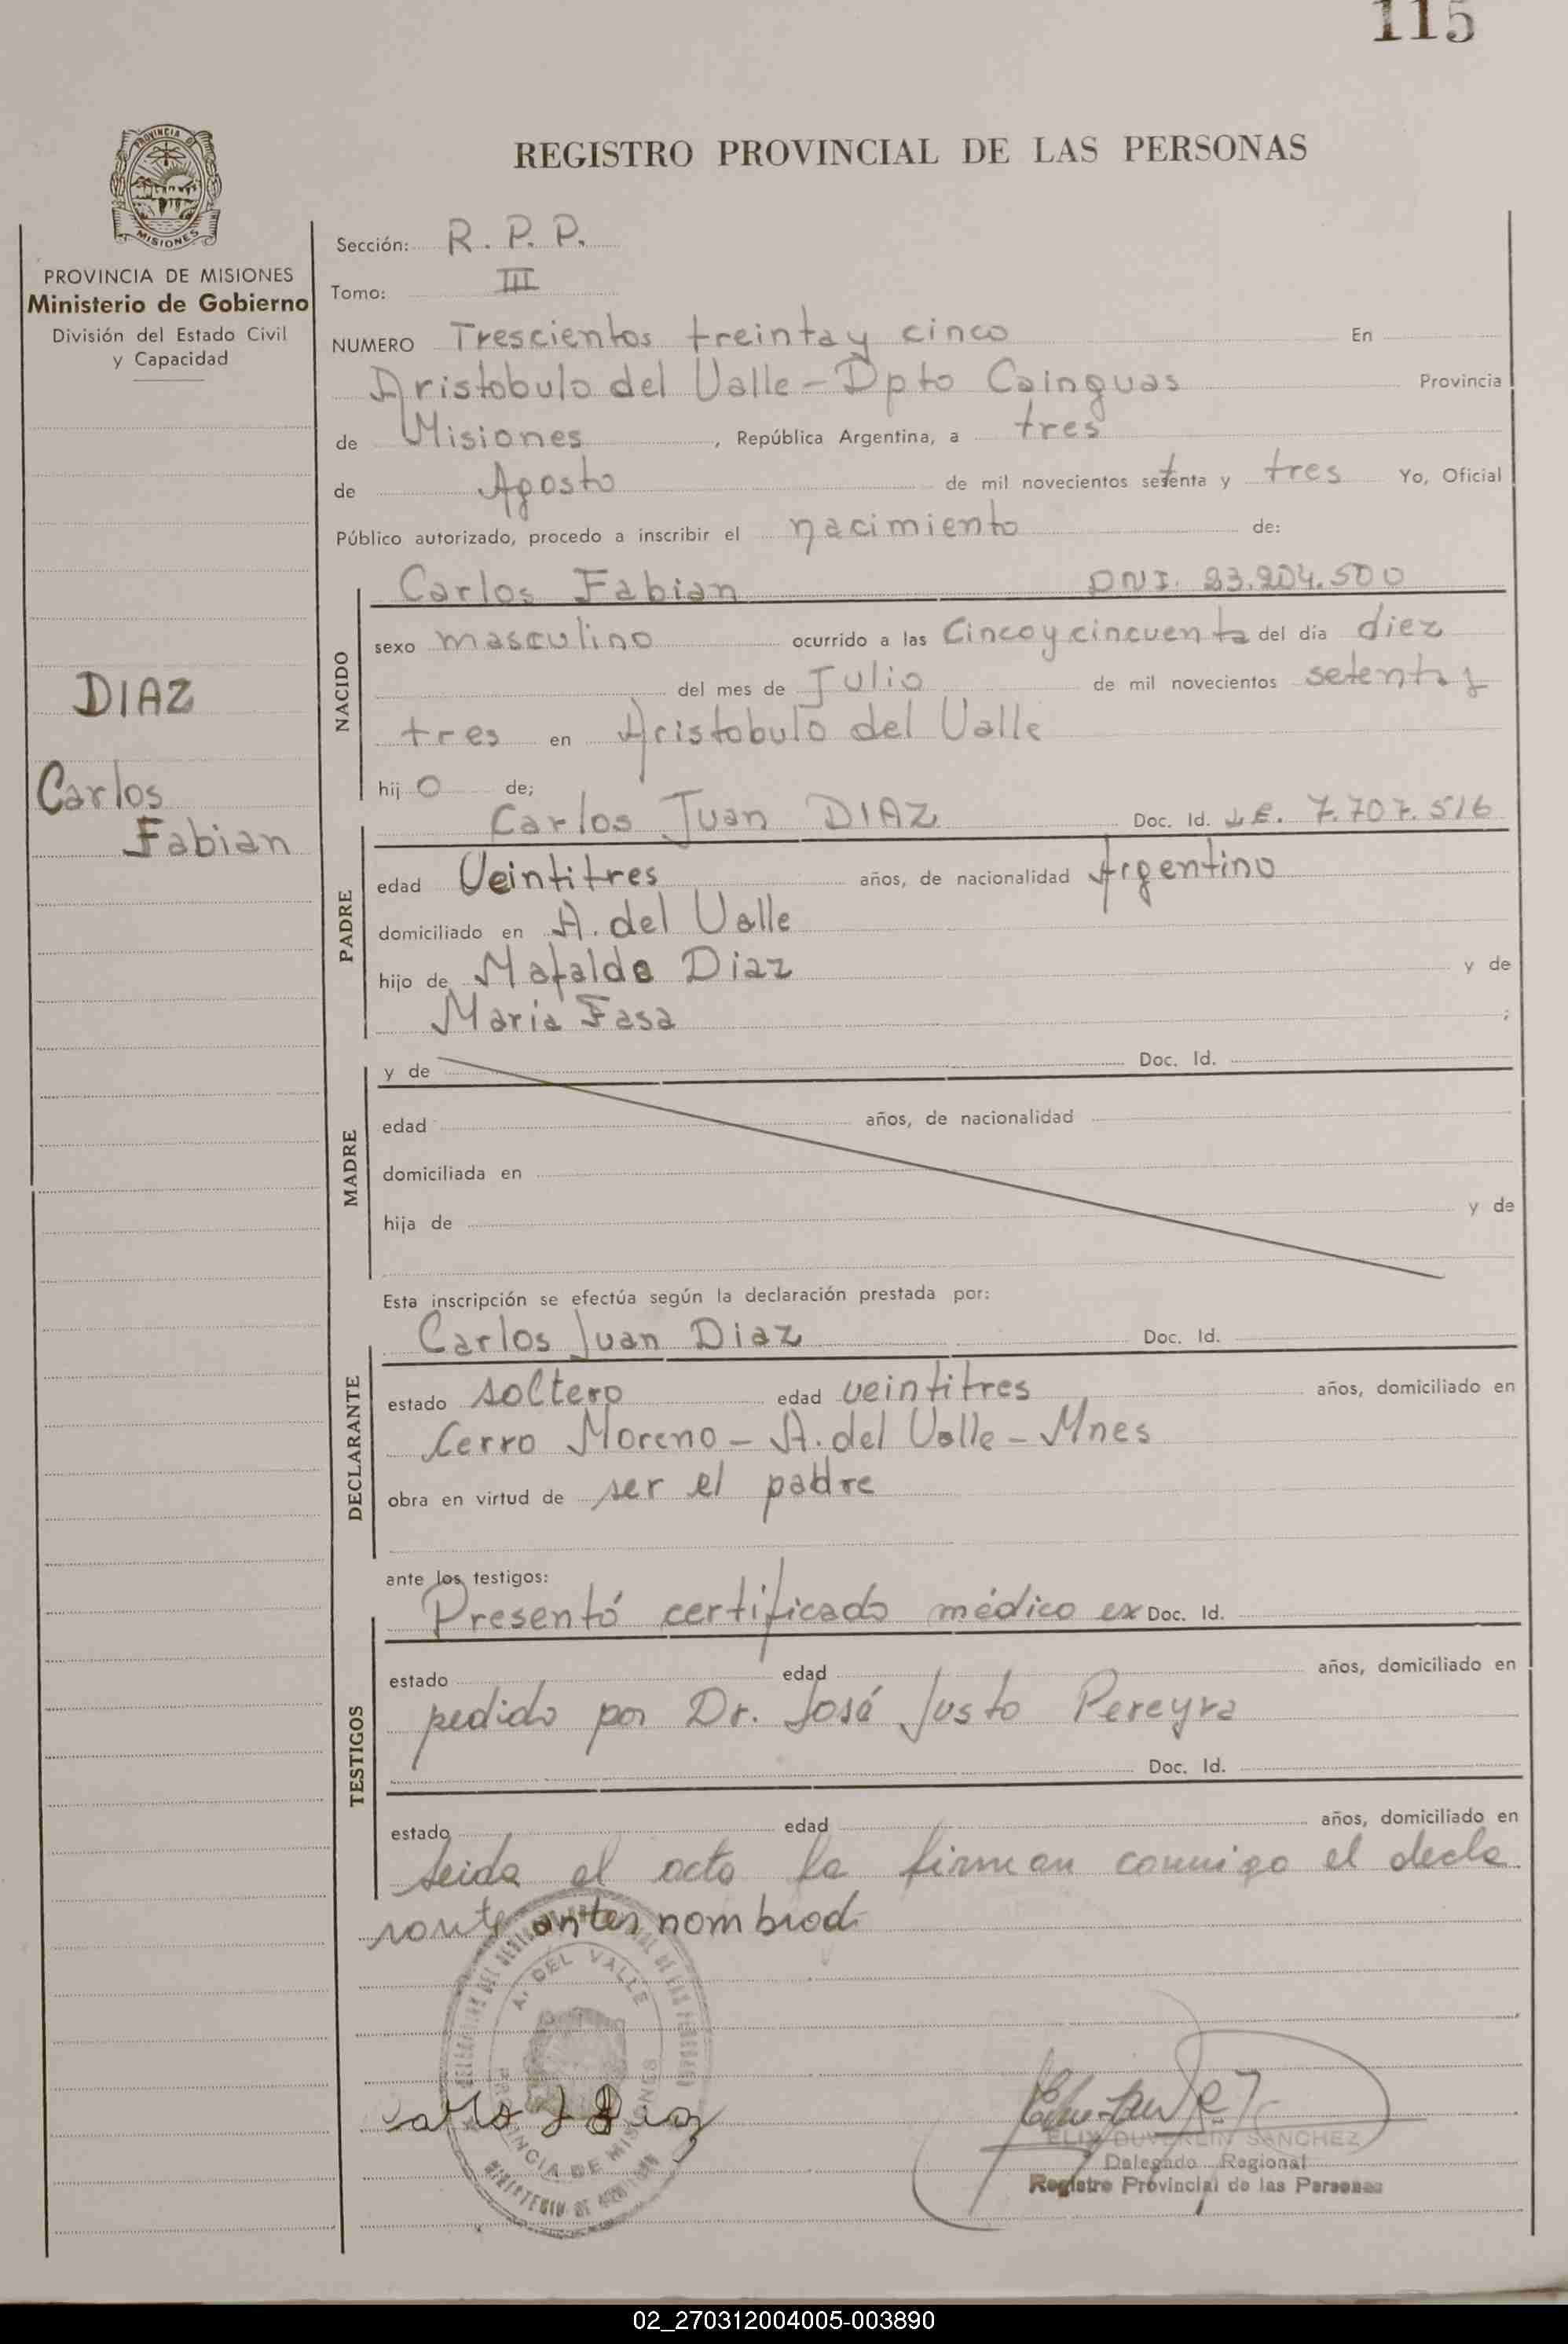 115
REGISTRO PROVINCIAL DE LAS PERSONAS
PROVINCIA DE
MISIONES
PROVINCIA DE MISIONES
Ministerio de Gobierno
División del Estado Civil
y Capacidad
DIAZ
Carlos
Fabian
Sección: R. P. P.
Tomo: III
NUMERO Trescientos treinta y cinco En
Aristobulo del Valle - Dpto Cainguas Provincia
de Misiones, República Argentina, a tres
de Agosto de mil novecientos setenta y tres Yo, Oficial
Público autorizado, procedo a inscribir el nacimiento de:
NACIDO
Carlos Fabian DNI. 23.204.500
sexo masculino ocurrido a las Cinco y cincuenta del día diez
del mes de Julio de mil novecientos setenta y
tres en Aristobulo del Valle
hijo de;
PADRE
Carlos Juan DIAZ Doc. Id. L.E. 7.707.516
edad Veintitres años, de nacionalidad Argentino
domiciliado en A. del Valle
hijo de Mafalda Diaz y de
Maria Fasa ;
MADRE
y de Doc. Id.
edad años, de nacionalidad
domiciliada en
hija de y de
Esta inscripción se efectúa según la declaración prestada por:
DECLARANTE
Carlos Juan Diaz Doc. Id.
estado soltero edad veintitres años, domiciliado en
Cerro Moreno - A. del Valle - Mnes
obra en virtud de ser el padre
ante los testigos:
TESTIGOS
Presentó certificado médico ex Doc. Id.
estado edad años, domiciliado en
pedido por Dr. José Justo Pereyra
Doc. Id.
estado edad años, domiciliado en
Leida el acta la firman conmigo el decla
rante antes nombrado
A. DEL VALLE
PROVINCIA DE MISIONES
MINISTERIO DE GOBIERNO
Carlos J Diaz
SANCHEZ
Delegado Regional
Registro Provincial de las Personas
02_270312004005-003890